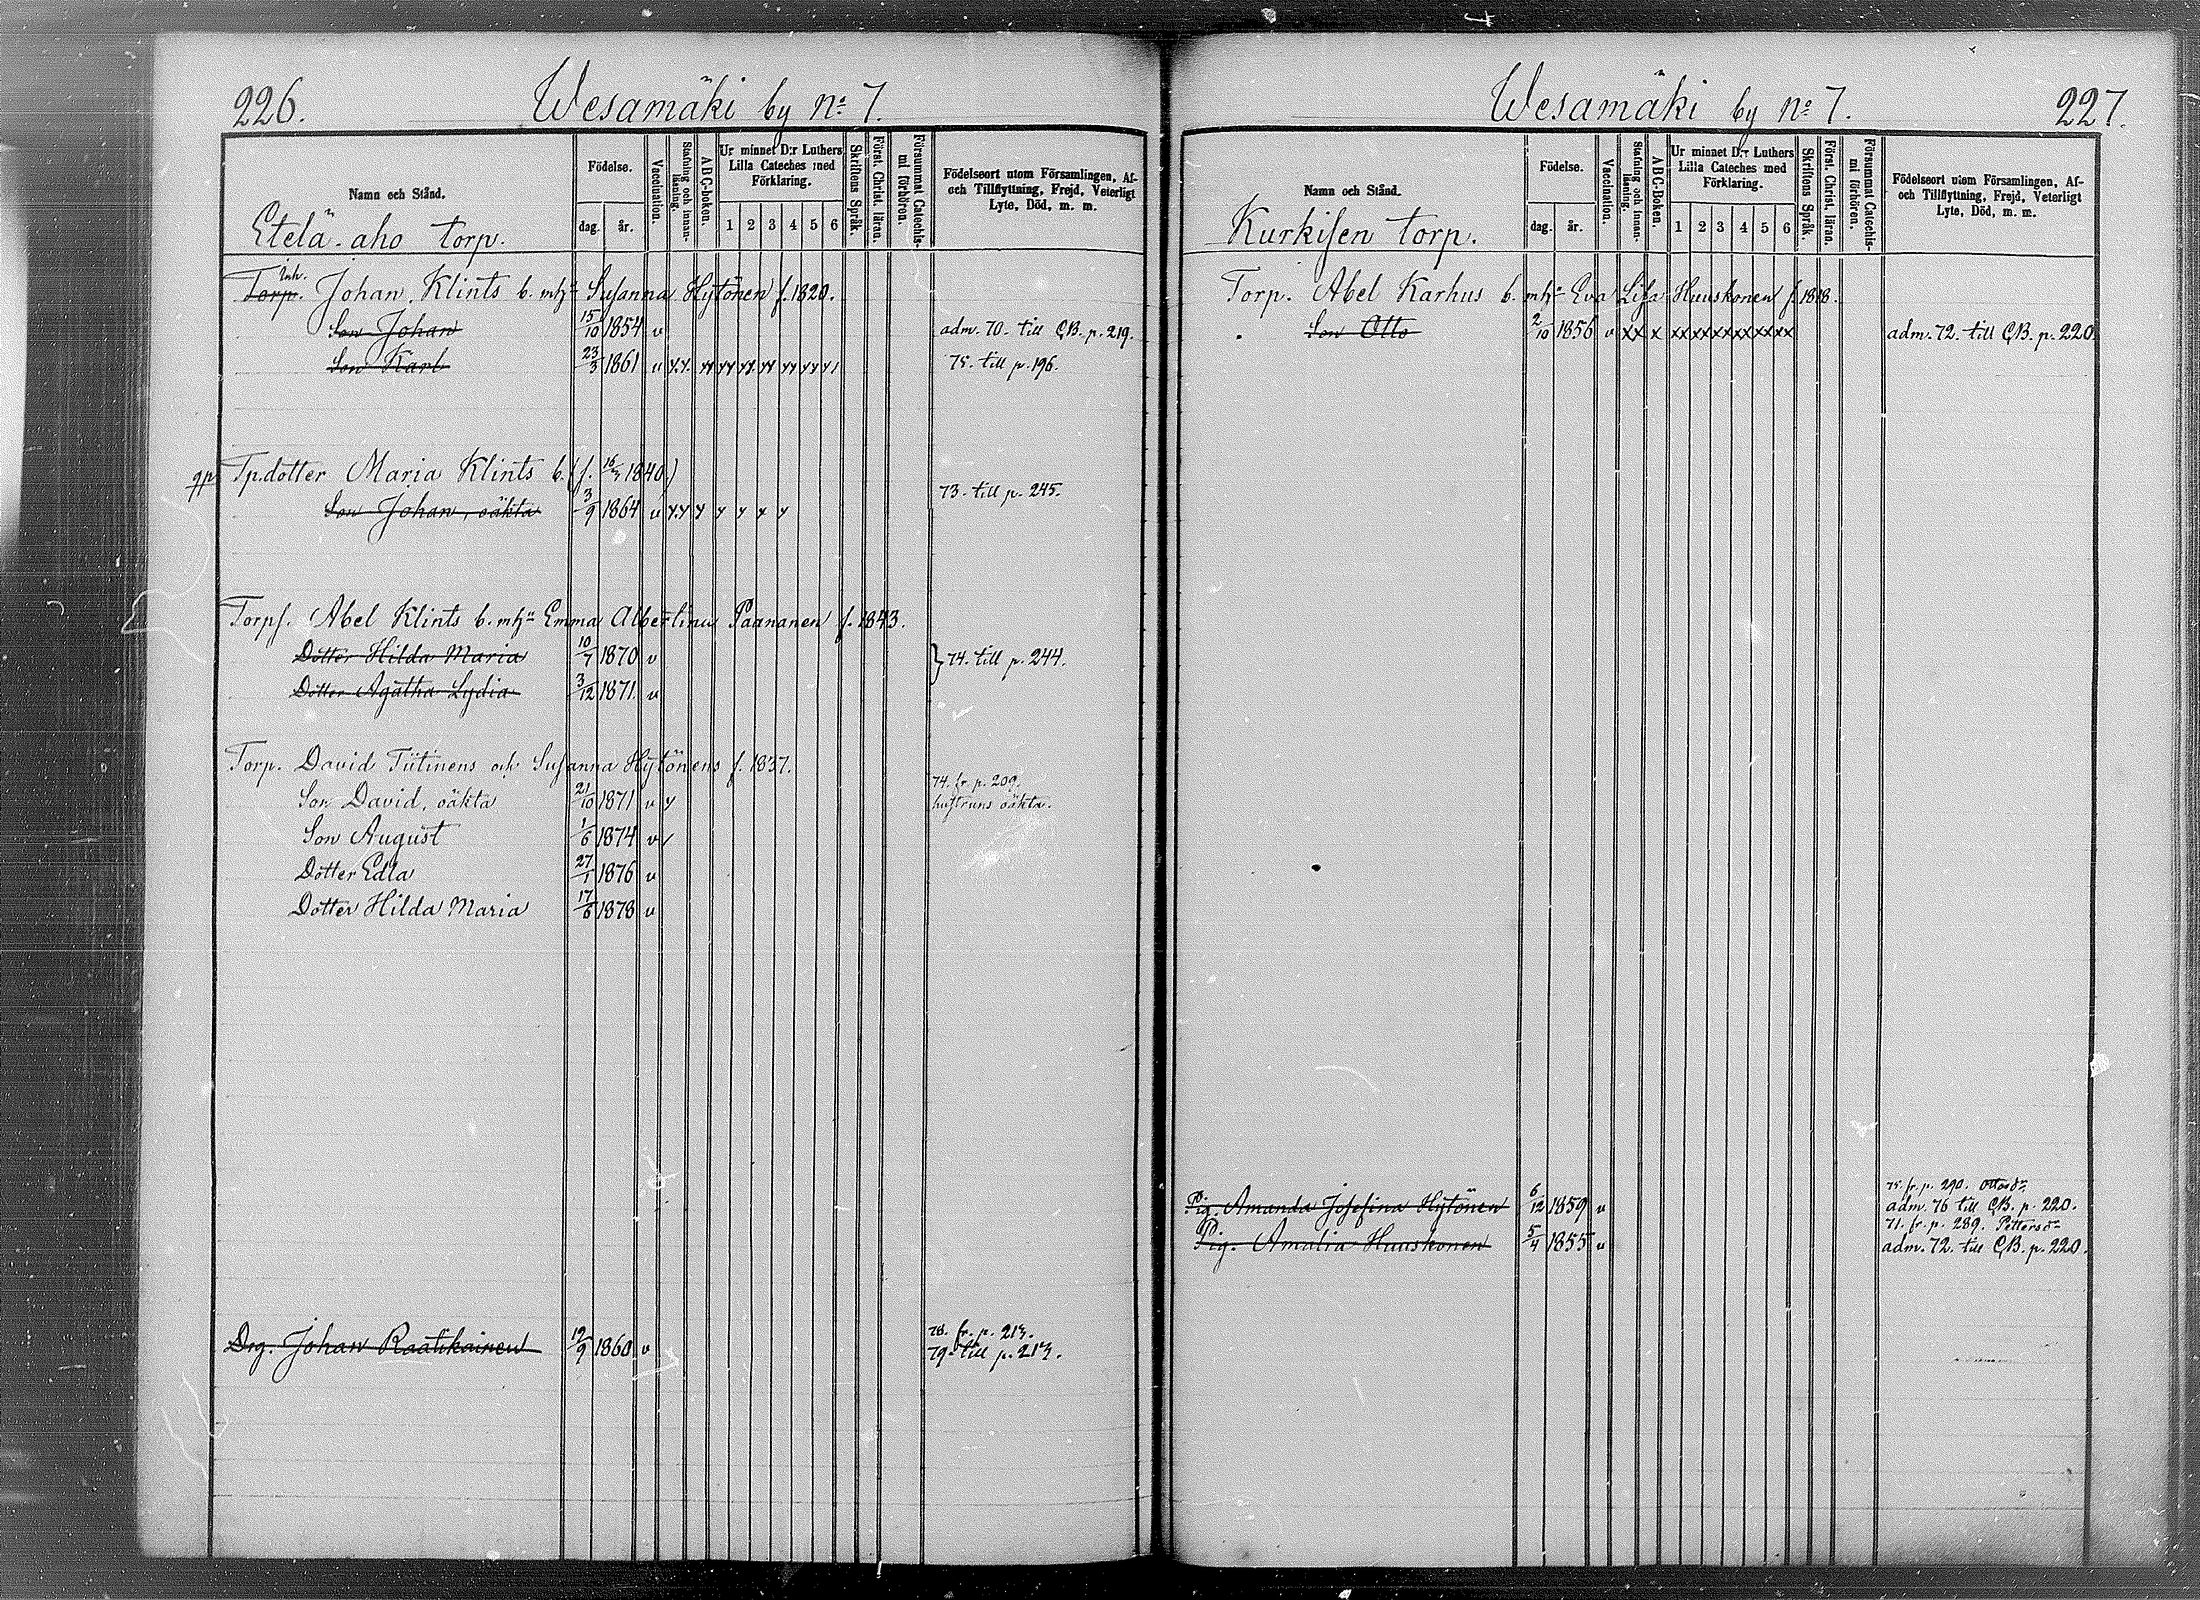 226. Wesamäki by No 7.
Namn och Stånd.
Födelse.
dag. år.
Vaccination.
Stafning och innan-läsning.
ABC-Boken.
Ur minnet D:r Luthers Lilla Cateches med Förklaring.
1 2 3 4 5 6
Skriftens Språk.
Först. Christ. läran.
Försummat Catechis-mi förhören.
Födelseort utom Församlingen, Af- och Tillflyttning, Frejd, Veterligt Lyte, Död, m. m.
Etelä-aho torp.
Inh.
Torp. Johan Klints b. mhu Susanna Hytönen f. 1820.
Son Johan 15/10 1854 v adm. 70. till CB. p. 219.
Son Karl 23/3 1861 v 75. till p. 196.
qp Tp.dotter Maria Klints b. (f. 1840.)
73. till p. 245.
Son Johan, oäkta 3/9 1864 v
Torpf. Abel Klints b. mhu Emma Albertina Paananen f. 1843.
Dotter Hilda Maria 10/7 1870 v } 74. till p. 244.
Dotter Agatha Lydia 3/12 1871. v
Torp. David Tiitinens och Susanna Hytönens f. 1837.
74. fr. p. 209.
Son David, oäkta 21/10 1871 v y hustruns oäkta.
Son August 1/6 1874 v /
Dotter Edla 27/1 1876 v
Dotter Hilda Maria 17/6 1878 v
78. fr. p. 213.
Drg. Johan Raatikainen 19/9 1860 v 79. till p. 213.
Wesamäki by No 7. 227.
Namn och Stånd.
Födelse.
dag. år.
Vaccination.
Stafning och innan-läsning.
ABC-Boken.
Ur minnet D:r Luthers Lilla Cateches med Förklaring.
1 2 3 4 5 6
Skriftens Språk.
Först. Christ. läran.
Försummat Catechis-mi förhören.
Födelseort utom Församlingen, Af- och Tillflyttning, Frejd, Veterligt Lyte, Död, m. m.
Kurkisen torp.
Torp. Abel Karhus b. mhu Eva Lisa Huuskonen f. 1818.
Son Otto 2/10 1856 v xx x xx xx xx xx xx xx adm. 72. till CB. p. 220
75. fr. p. 290. Ottosdr
Pig. Amanda Josefina Hytönen 6/12 1859 v adm. 76 till CB. p. 220.
71. fr. p. 289. Pettersdr
Pig. Amalia Huuskonen 5/4 1855 v adm. 72. till CB. p. 220.